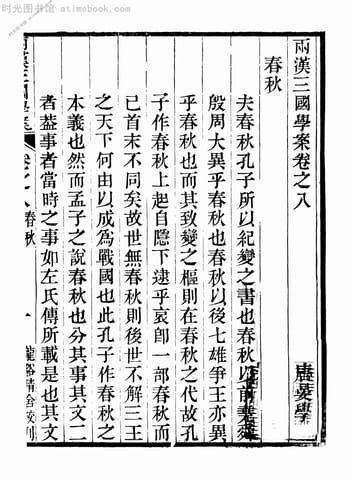 时光图书馆 - atimebook.com
兩漢三國學案卷之八
春秋
夫春秋孔子所以紀變之書也春秋以前
殷周大異乎春秋也春秋以後七雄爭王亦異
乎春秋也而其致變之樞則在春秋之代故孔
子作春秋上起自隱下逮乎哀卽一部春秋而
已首末不同矣故世無春秋則後世不解三王
之天下何由以成為戰國也此孔子作春秋之
本義也然而孟子之說春秋也分其事其文二
者葢事者當時之事如左氏傳所載是也其文
卷之八 春秋 一 龍谿精舍校刊